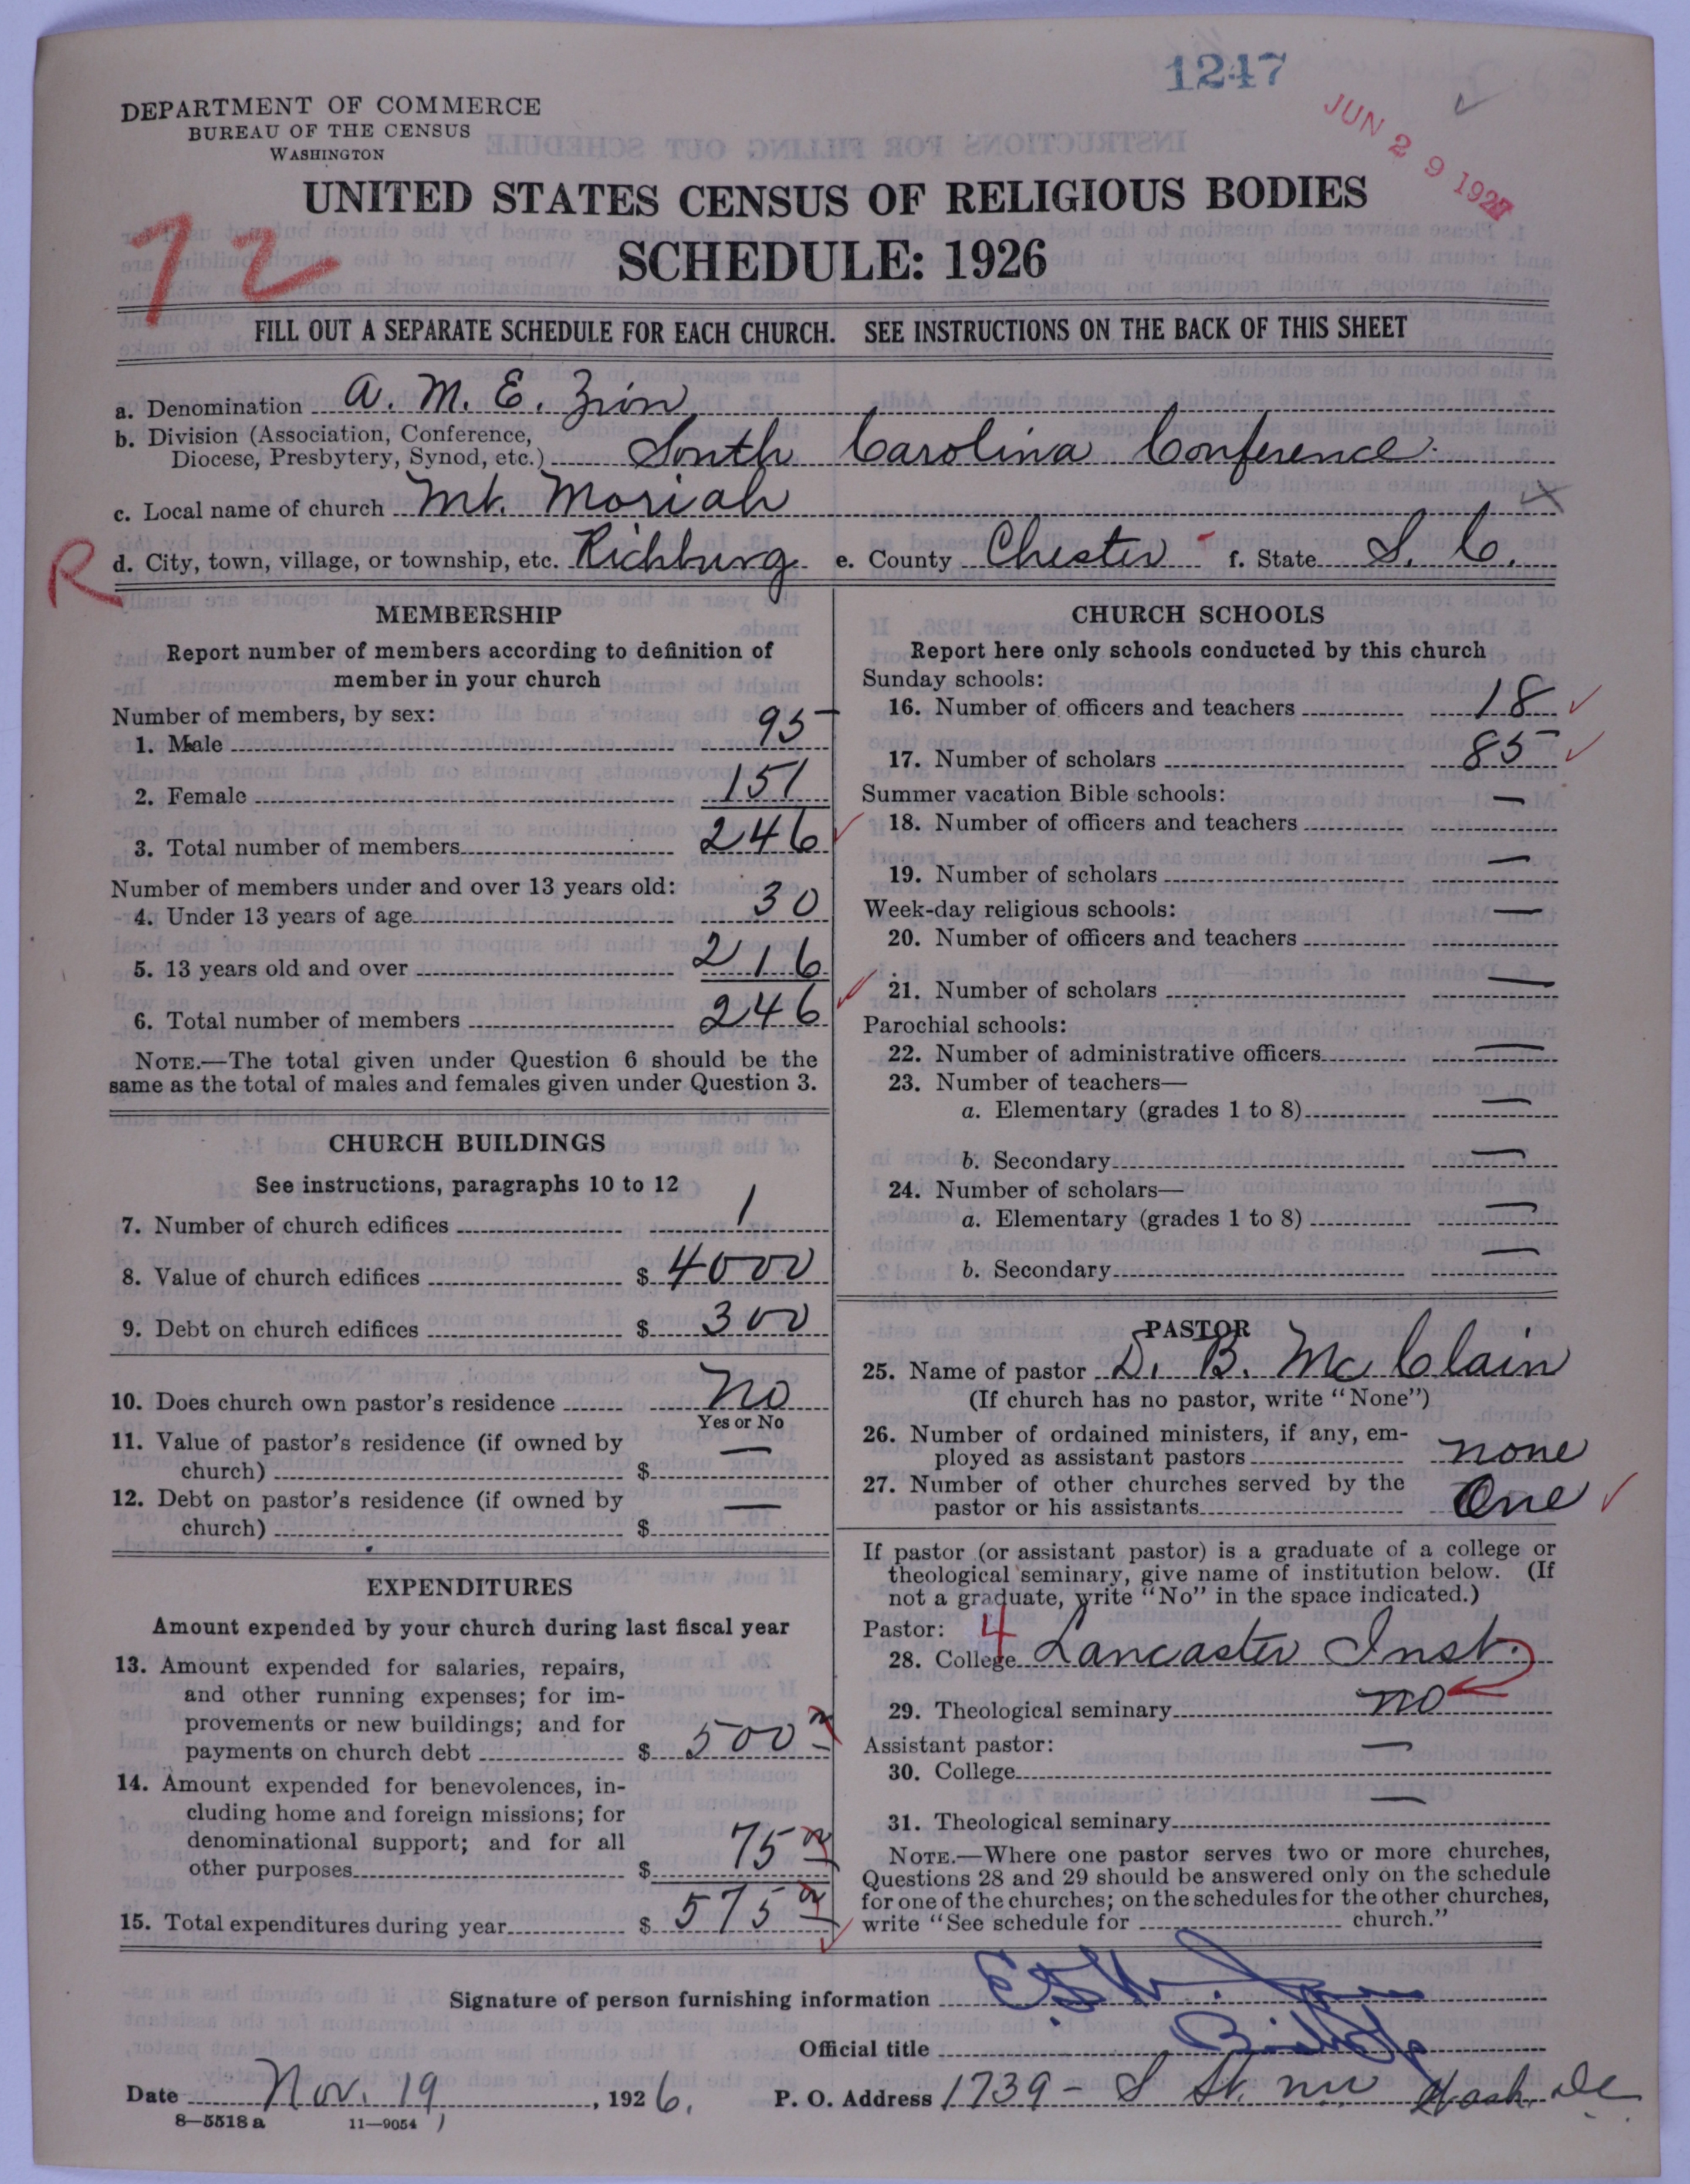 1247
JUN 29 1927
DEPARTMENT OF COMMERCE
BUREAU OF THE CENSUS
WASHINGTON
UNITED STATES CENSUS OF RELIGIOUS BODIES
SCHEDULE: 1926
72
FILL OUT A SEPARATE SCHEDULE FOR EACH CHURCH. SEE INSTRUCTIONS ON THE BACK OF THIS SHEET
a. Denomination A. M. E. Zion
b. Division (Association, Conference,
Diocese, Presbytery, Synod, etc.) South Carolina Conference
c. Local name of church Mt. Moriah
R
d. City, town, village, or township, etc. Richburg e. County Chester f. State S. C.
MEMBERSHIP
Report number of members according to definition of
member in your church
Number of members, by sex:
1. Male 95
2. Female 151
3. Total number of members 246
Number of members under and over 13 years old:
4. Under 13 years of age 30
5. 13 years old and over 216
6. Total number of members 246
NOTE.—The total given under Question 6 should be the
same as the total of males and females given under Question 3.
CHURCH BUILDINGS
See instructions, paragraphs 10 to 12
7. Number of church edifices 1
8. Value of church edifices $ 4000
9. Debt on church edifices $ 300
10. Does church own pastor's residence No
Yes or No
11. Value of pastor's residence (if owned by
church) $ —
12. Debt on pastor's residence (if owned by
church) $ —
EXPENDITURES
Amount expended by your church during last fiscal year
13. Amount expended for salaries, repairs,
and other running expenses; for im-
provements or new buildings; and for
payments on church debt $ 500
14. Amount expended for benevolences, in-
cluding home and foreign missions; for
denominational support; and for all
other purposes $ 75
15. Total expenditures during year $ 575
CHURCH SCHOOLS
Report here only schools conducted by this church
Sunday schools:
16. Number of officers and teachers 18
17. Number of scholars 85
Summer vacation Bible schools:
18. Number of officers and teachers —
19. Number of scholars —
Week-day religious schools:
20. Number of officers and teachers —
21. Number of scholars —
Parochial schools:
22. Number of administrative officers —
23. Number of teachers—
a. Elementary (grades 1 to 8) —
b. Secondary —
24. Number of scholars—
a. Elementary (grades 1 to 8) —
b. Secondary —
PASTOR
25. Name of pastor D. B. McClain
(If church has no pastor, write "None")
26. Number of ordained ministers, if any, em-
ployed as assistant pastors none
27. Number of other churches served by the
pastor or his assistants One
If pastor (or assistant pastor) is a graduate of a college or
theological seminary, give name of institution below. (If
not a graduate, write "No" in the space indicated.)
Pastor: 4
28. College Lancaster Inst.
29. Theological seminary no
Assistant pastor:
30. College —
31. Theological seminary —
NOTE.—Where one pastor serves two or more churches,
Questions 28 and 29 should be answered only on the schedule
for one of the churches; on the schedules for the other churches,
write "See schedule for church."
Signature of person furnishing information
Official title Bishop
Date Nov. 19, 1926. P. O. Address 1739 - S St. nw Wash. DC
8—5518 a 11—9054